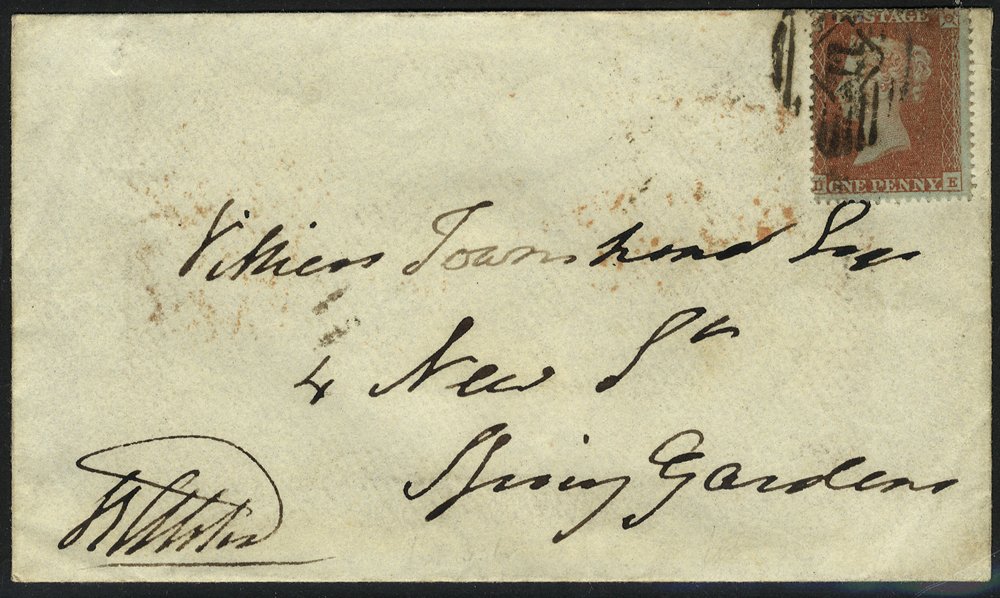 POSTAGE
ONE PENNY E
Villiers Townshend Esqr
4 New St
Spring Gardens